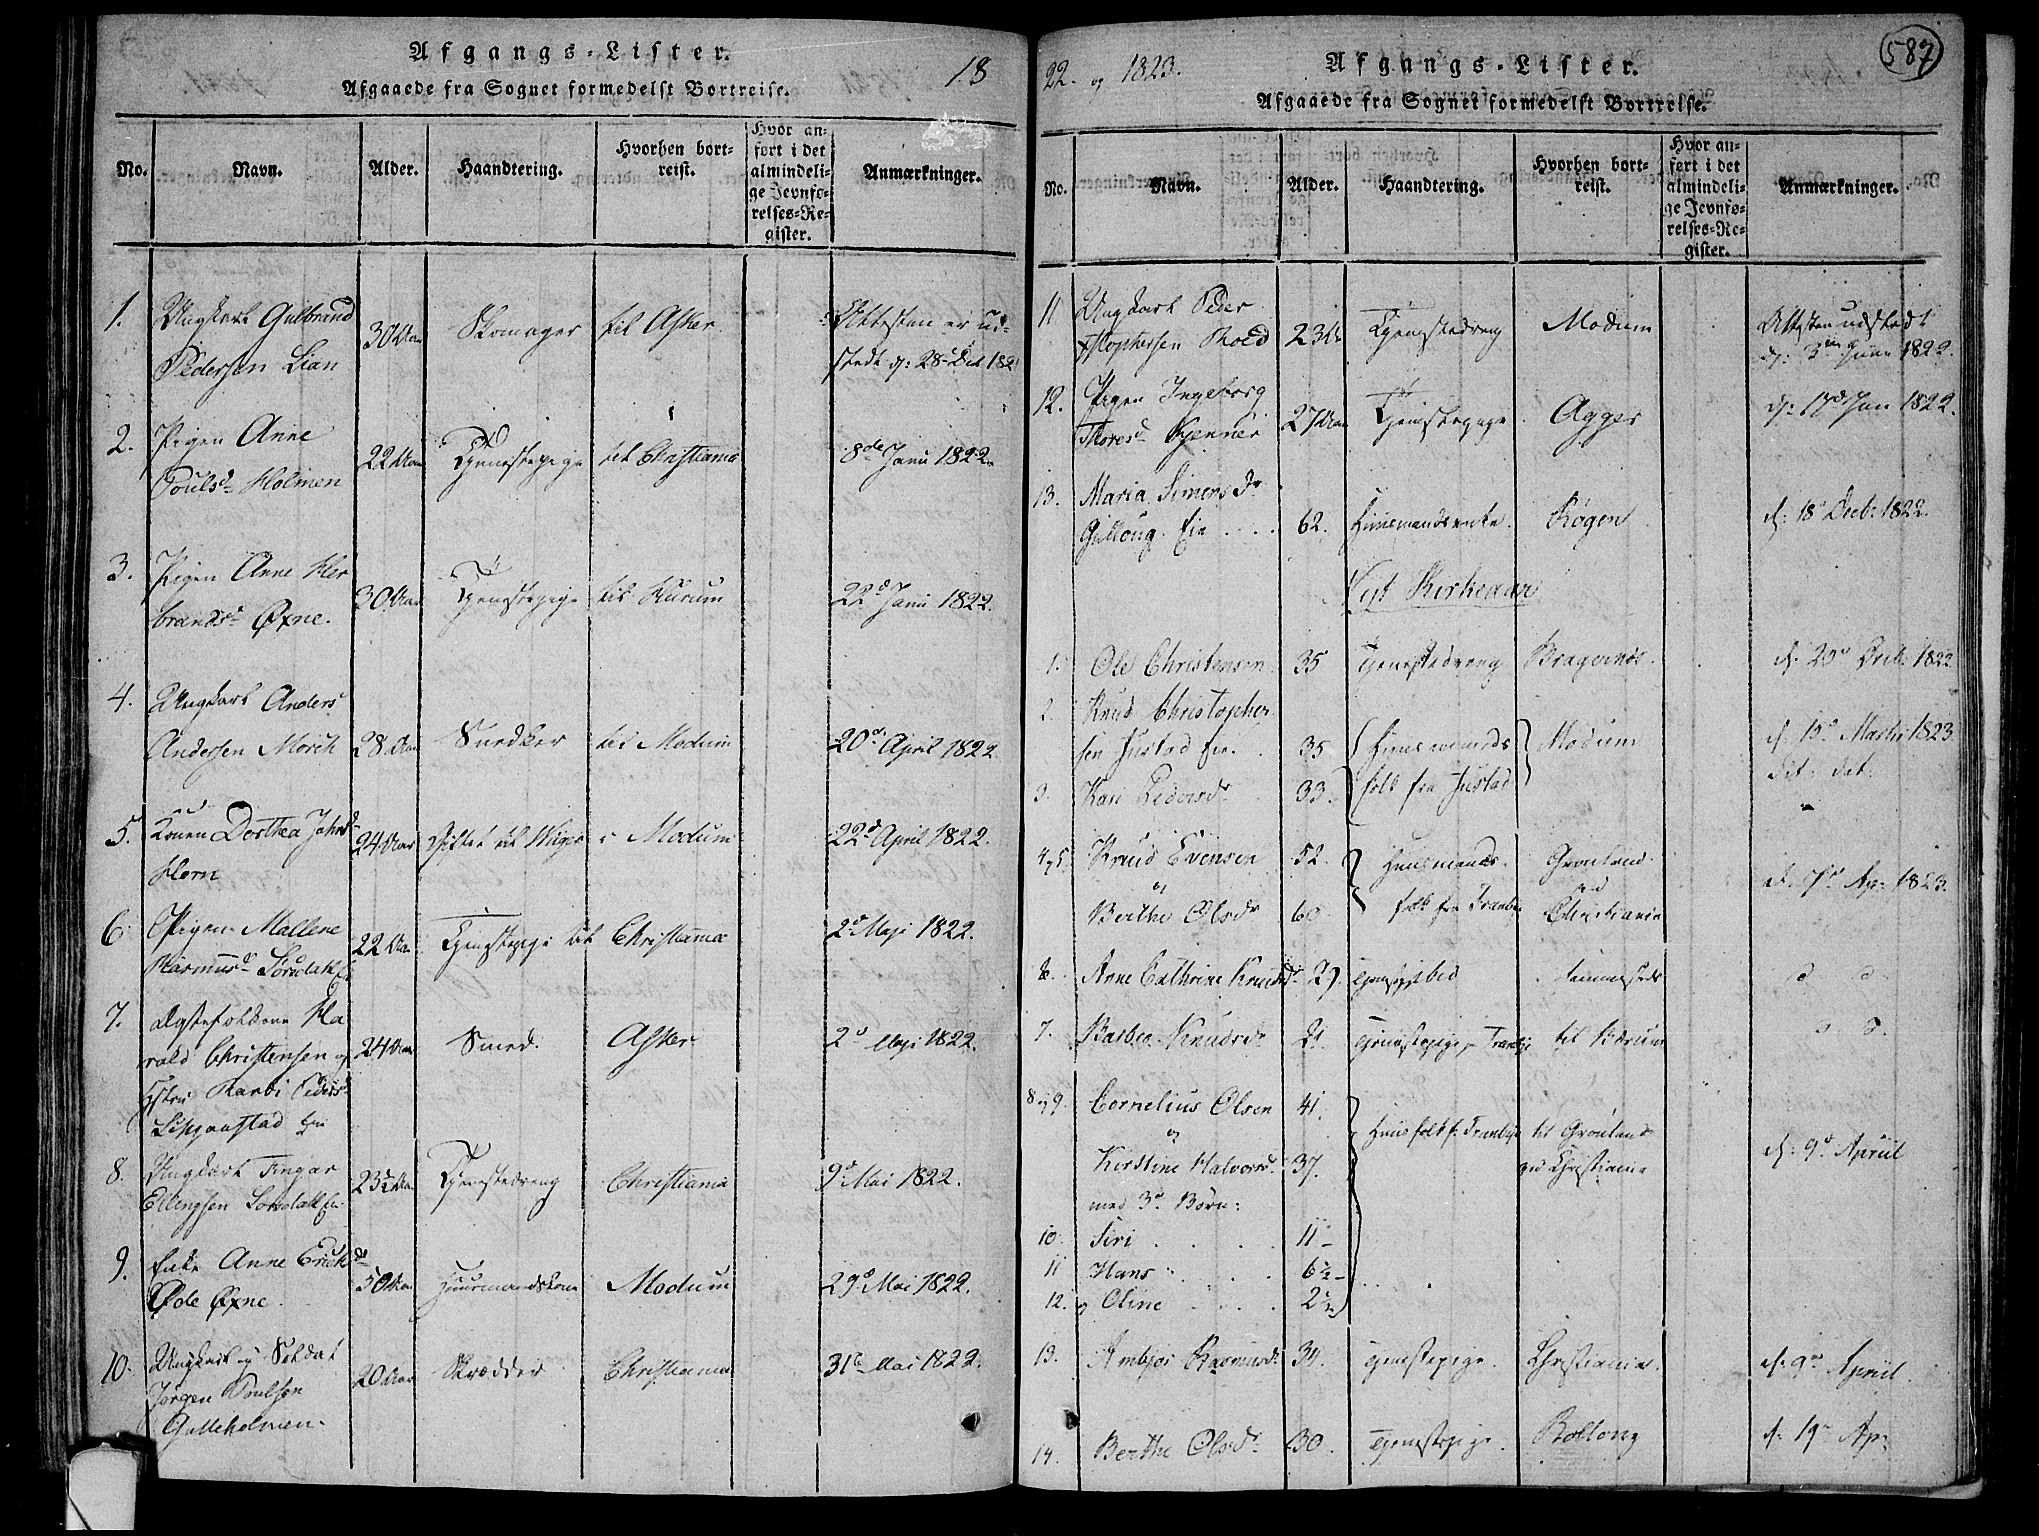 Afgangs-Lister.
Afgaaede fra Sognet formedelst Bortreise.
18
No.
Navn.
Alder.
Haandtering.
Hvorhen bort-
reist.
Hvor an-
ført i det
almindeli-
ge Jevnfø-
relses-Re-
gister.
Anmærkninger.
1. Ungkarl Gulbrand
Pedersen Lian
30 Aar
Skomager
til Asker.
Attesten er ud-
stedt d: 28 Det 182
2. Pigen Anne
Poulsd Holmen
22 Aar
Tjenestepige
til Christiania
8de Janu 1822.
3. Pigen Anne Her
brandsd Øxne.
30 Aar
Tjenestepige
til Hurum
22d Janu 1822.
4. Ungkarl Anders
Andersen Morch
28 Aar
Snedker
til Modum
20d April 1822.
5. Konen Dorthea Johnsd
Horn
24 Aar
Giftet til Wiger
Modum
22d April 1822.
6. Pigen Mallene
Rasmusd Sørsdal Eie
22 Aar
Tjenestepige til
Christiania
2d Maji 1822.
7. Ægtefolkene Ha
rald Christensen og
Hstru Karbi Peders
Eie
24 Aar
Smed.
Asker
2d Maji 1822.
8. Ungkarl Fingar
Ellingsen Sørsdal Eie
23½ Aar
Tjenestedreng
Christiania
9d Mai 1822.
9. Enke Anne Erichsdr
Øde Øxne.
50 Aar
Huusmandskone
Modum
29d Mai 1822.
10. Ungkarl og Soldat
Jørgen Poulsen
Gulleholmen.
20 Aar
Skrædder
Christiania
31te Mai 1822.
22. og 1823.
587
Afgangs-Lister.
Afgaaede fra Sognet formedelst Bortreise.
No.
Navn.
Alder.
Haandtering.
Hvorhen bort-
reist.
Hvor an-
ført i det
almindeli-
ge Jevnfø-
relses-Re-
gister.
Anmærkninger.
11 Ungkarl Peder
Xstophersen Roed
23 Ar
Tjenestedreng
Modum
Attesten udstedt
d: 3die Junii 1822.
12. Pigen Ingeborg
Thoresd Kjenner
27 Aar
Tjenestepige
Agger
d: 17d Jun 1822.
13. Maria Simensdr
Gullaug. Eie
62.
Huusmandsenke.
Røgen
d. 18d Decb: 1822.
Nyt Kirkeaar
1. Ole Christensen
35
Tjenestedreng
Bragernes.
d. 20d Decb. 1822
2. Knud Christopher
sen Justad Eie.
35
Huusmands
Modum
d. 13d Marti 1823.
3. Kari Pedersdr
33.
folk fra Justad
det. det.
4 og 5. Knud Evensen
52.
Huusmands.
Grønland
og
ved
d. 7d Apr: 1823.
Berthe Olsdr
60
folk fra Tranby
Christiania
6. Anne Cathrine Knudsdr
29.
7. Barbro Knudsdr
21
Tjenestepige, Tranby
til Hurum
8 og 9. Cornelius Olsen
41.
Huusfolk f. Tranby
til Grønland
og
ved Christiania
d. 9d Apriil
Kirstine Halvorsd
37.
med 3d Børn:
10. Siri
11
11 Hans
6½
12. og Oline
2½
13. Ambjør Rasmusdr
34.
Tjenestepige.
Christiania.
d. 9d Apriil.
14. Berthe Olsdr
30.
Tjenestepige.
d. 19d Apr